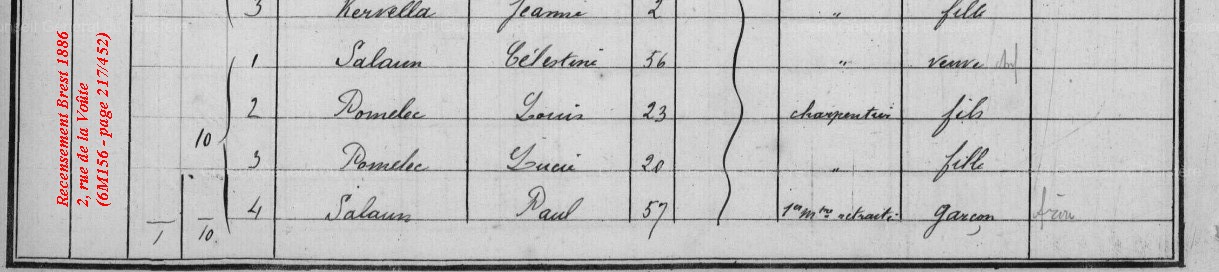 Recensement Brest 1886
2, rue de la Voûte
(6M156 - page 217/452)
3 Kervella Jeanne 2 " fille
1 Salaun Célestine 56 " veuve
2 Pomelec Louis 23 charpentier fils
10
3 Pomelec Lucie 20 " fille
4 Salaun Paul 57 1er mtre retraité garçon frère
1 10